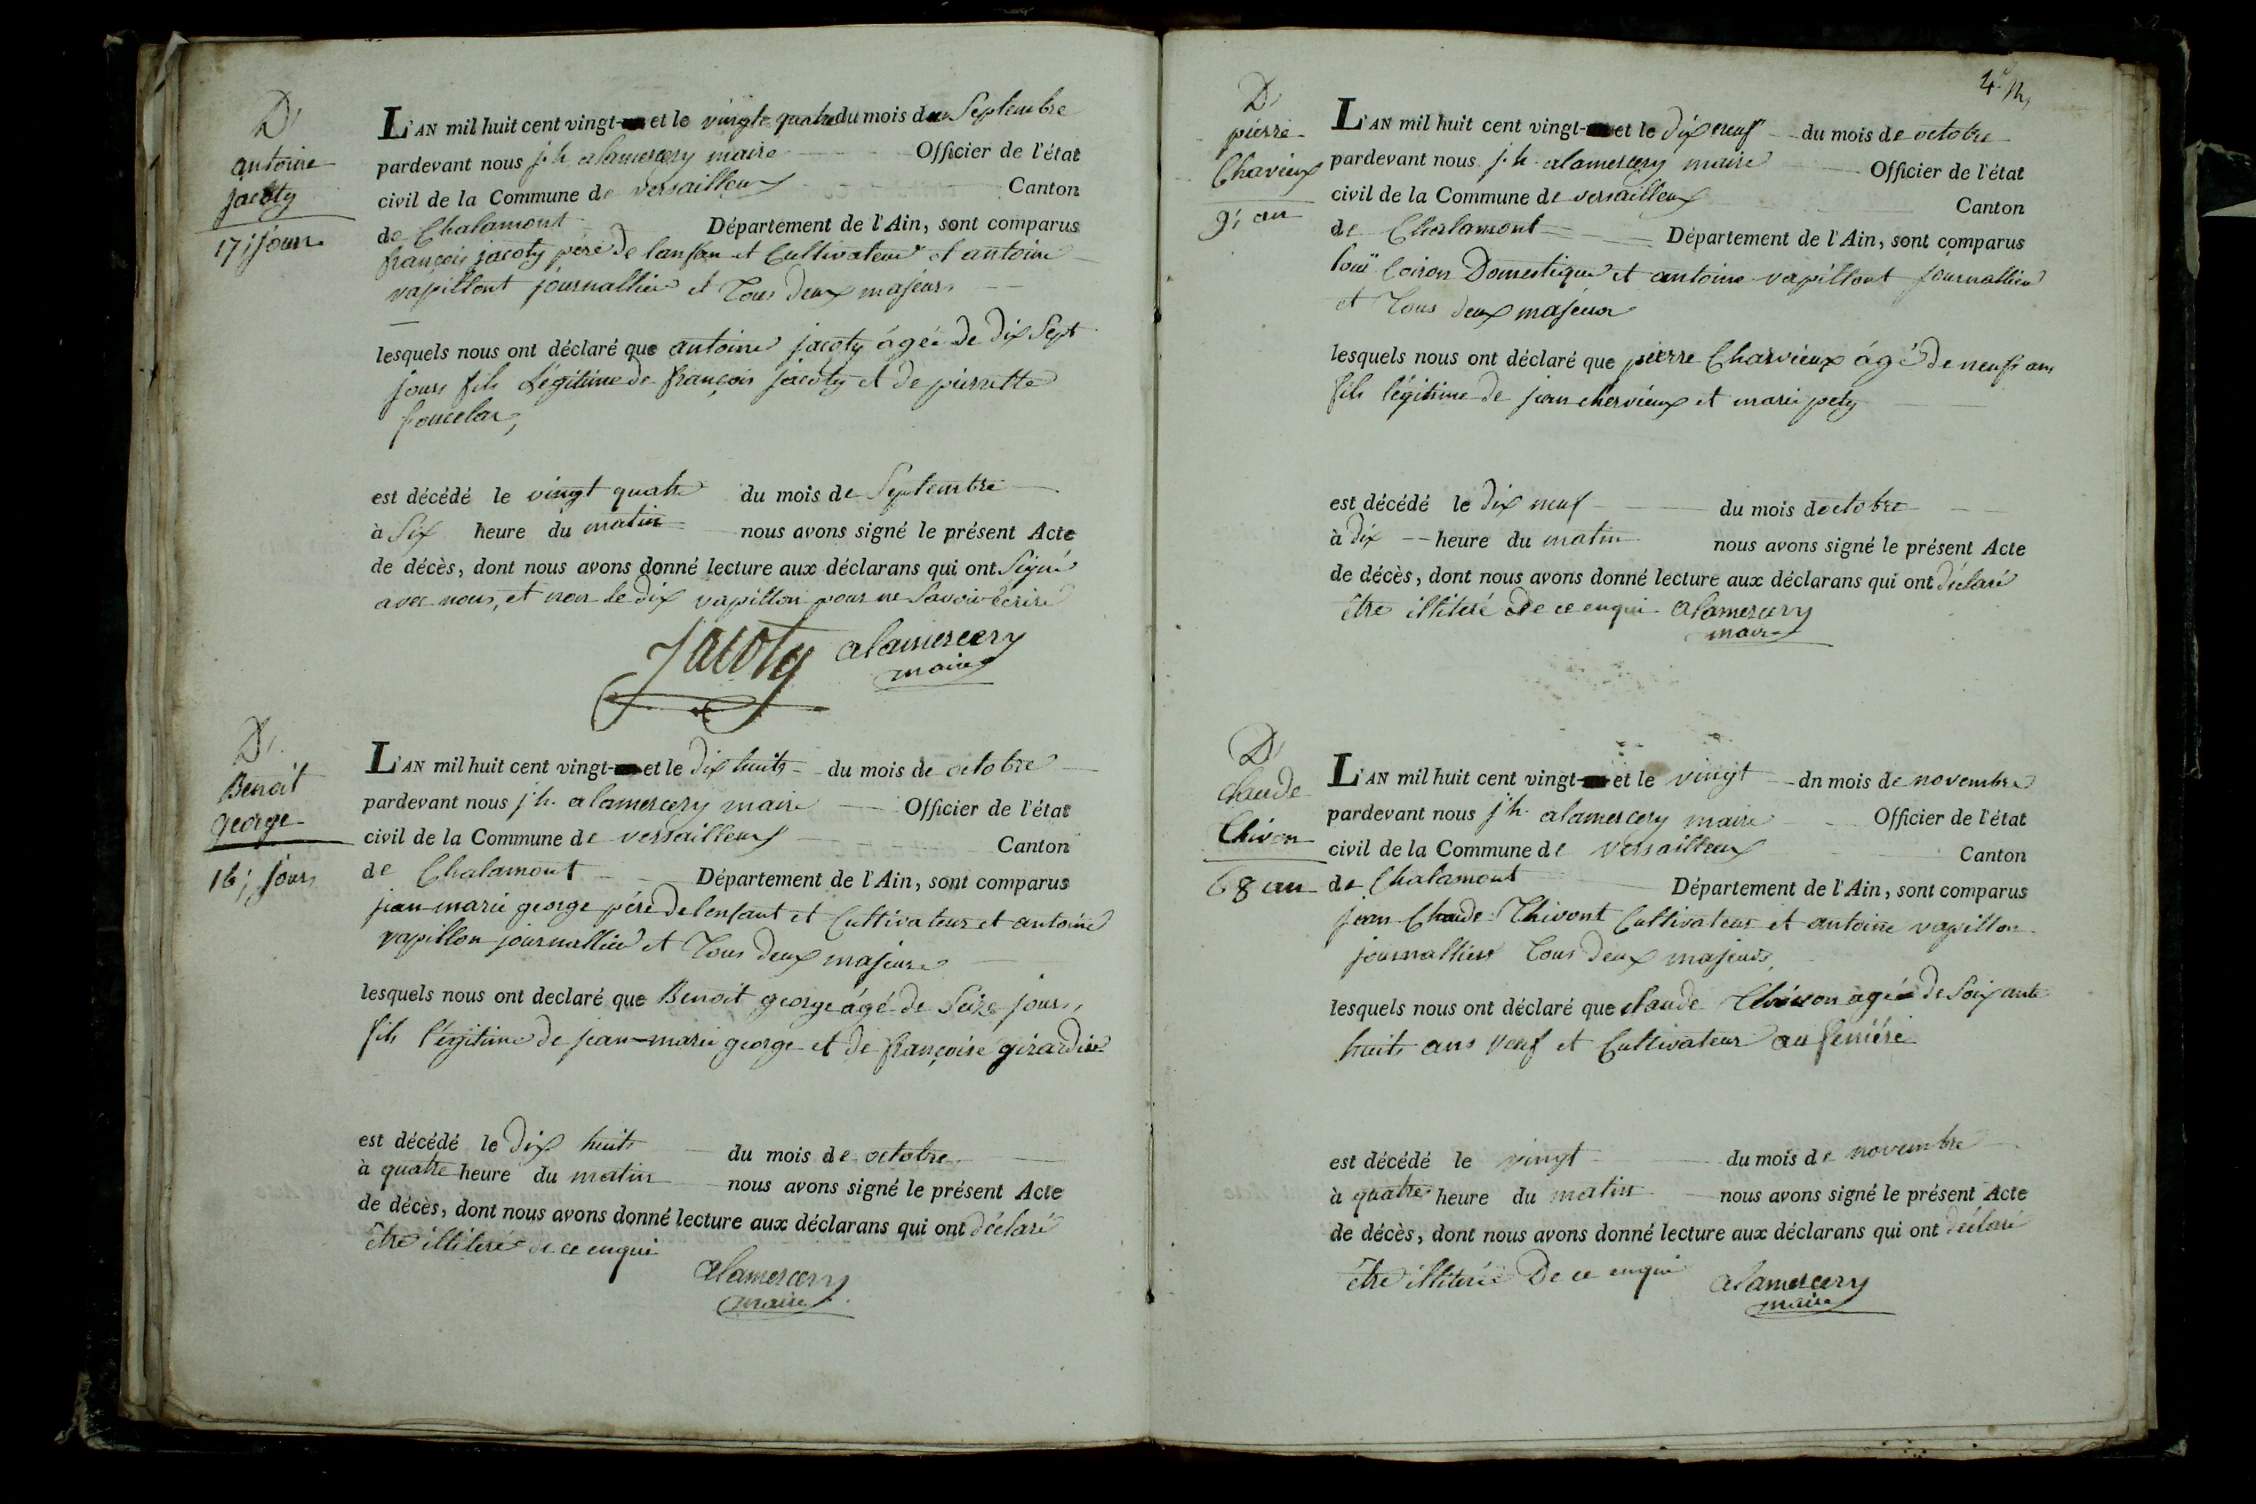 D,
antoine
jacoty
17; jours
L'AN mil huit cent vingt- et le vingt quatre du mois de Septembre
pardevant nous j.h. alamercery maire Officier de l'état
civil de la Commune de versailleux Canton
de Chalamont Département de l'Ain, sont comparus
françois jacoty père de lenfan et Cultivateur et antoine
vapillont journallier et Tous deux majeurs
lesquels nous ont déclaré que antoine jacoty ágée de dix Sept
jours fils Légitime de françois jacoty et de pierrette
est décédé le vingt quatre du mois de Septembre
à Six heure du matin nous avons signé le présent Acte
de décès, dont nous avons donné lecture aux déclarans qui ont Signé
avec nous, et non le dix vapillon pour ne Savoir écrire
Jacoty alamercery
maire
D,
Benoit
george
16; jours
L'AN mil huit cent vingt- et le dix huits du mois de octobre
pardevant nous j.h. alamercery maire Officier de l'état
civil de la Commune de versailleux Canton
de Chalamont Département de l'Ain, sont comparus
jean-marie george pére de lenfant et Cultivateur et antoine
vapillon journallier et Tous deux majeurs
lesquels nous ont declaré que Benoit george ágé de Seize jours,
fils légitime de jean-marie george et de françoise girardin
est décédé le dix huits du mois de octobre
à quatre heure du matin nous avons signé le présent Acte
de décès, dont nous avons donné lecture aux déclarans qui ont déclaré
être illiteré de ce enqui
alamercery
maire
D,
pierre
Chavieux
9; an
L'AN mil huit cent vingt- et le dix neuf du mois de octobre
pardevant nous j.h. alamercery maire Officier de l'état
civil de la Commune de versailleux Canton
de Chalamont Département de l'Ain, sont comparus
Domestique et antoine vapillont journallier
et Tous deux majeur
lesquels nous ont déclaré que pierre Charvieux ágé de neufs ans
fils légitime de jean chervieux et marie pety
est décédé le dix neuf du mois doctobre
à dix heure du matin nous avons signé le présent Acte
de décès, dont nous avons donné lecture aux déclarans qui ont déclaré
être illiteré de ce enqui alamercery
maire
D,
claude
Chivon
68 an
L'AN mil huit cent vingt- et le vingt dn mois de novembre
pardevant nous j.h. alamercery maire Officier de l'état
civil de la Commune de versailleux Canton
de Chalamont Département de l'Ain, sont comparus
jean Claude Thivont Cultivateur et antoine vapillon
journallier Tous deux majeurs
lesquels nous ont déclaré que claude agée de Soixante
huits ans veuf et Cultivateur au
est décédé le vingt du mois de novembre
à quatre heure du matin nous avons signé le présent Acte
de décès, dont nous avons donné lecture aux déclarans qui ont déclaré
être illiterée De ce enqui alamercery
maire